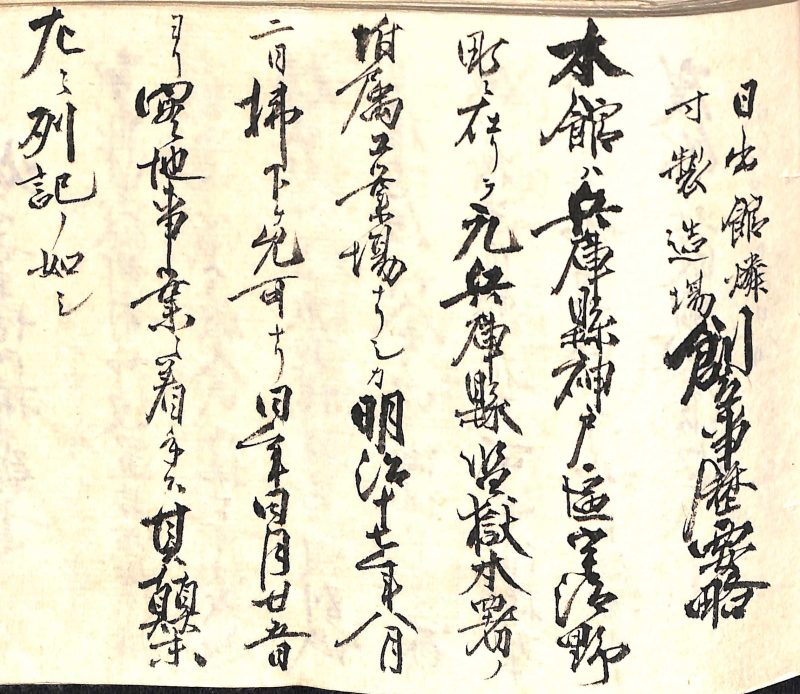 日出館燐
寸製造場
創立事歴槩略
本館ハ兵庫縣神戸區宇治野
町ニ在リテ元兵庫縣監獄本署ノ
附属工業場ナリシカ明治十七年八月
二日拂下允可ナリ同年同月廿五日
ヨリ實地事業ニ着手ス其顛末
左ニ列記ノ如シ